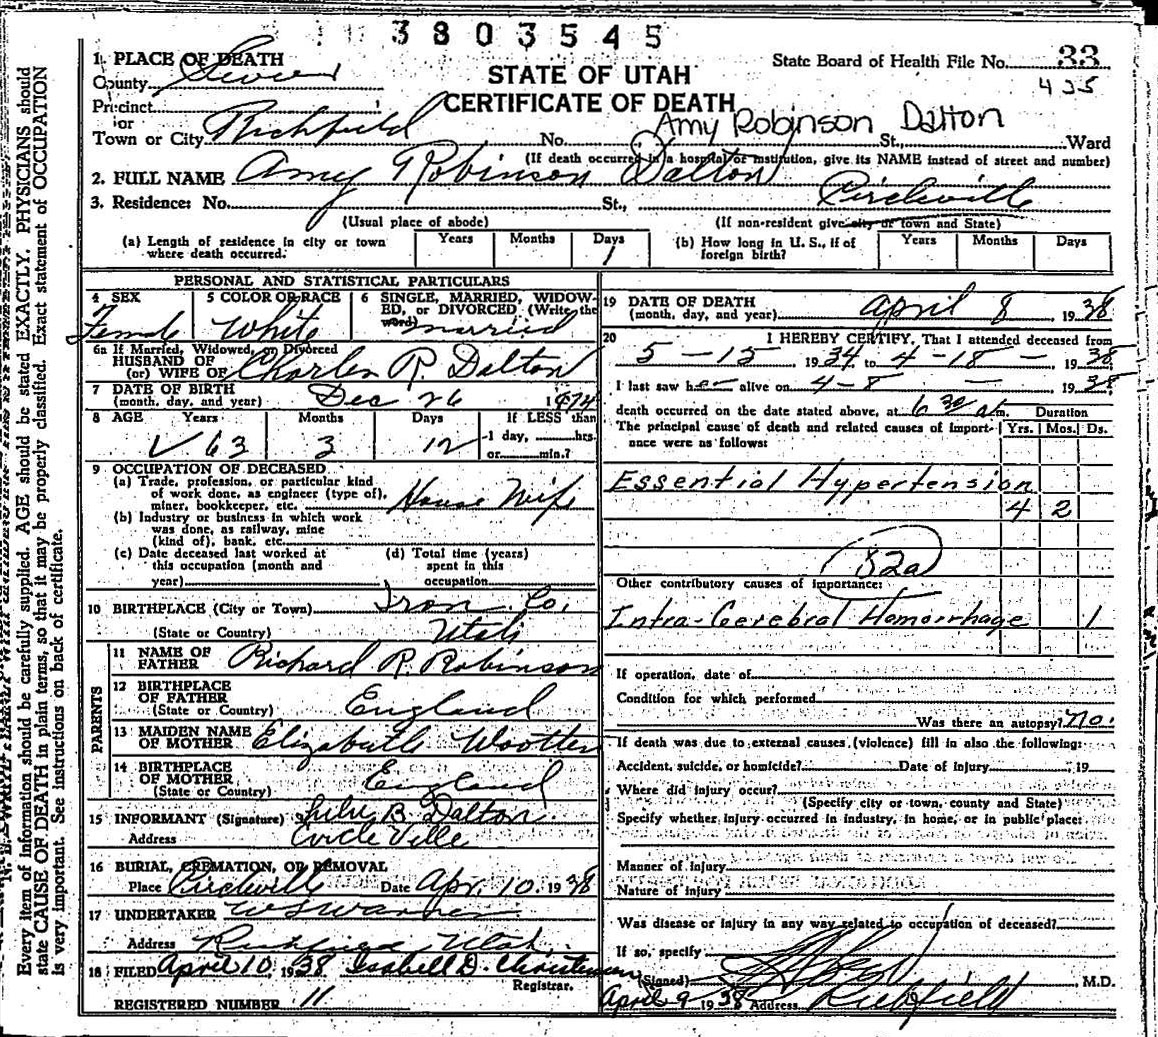 3803545
State Board of Health File No. 33
435
STATE OF UTAH
CERTIFICATE OF DEATH
Amy Robinson Dalton
1. PLACE OF DEATH
County Sevier
Precinct
or
Town or City Richfield No. St., Ward
(If death occurred in a hospital or institution, give its NAME instead of street and number)
2. FULL NAME Amy Robinson Dalton
3. Residence: No. St., Circleville
(Usual place of abode) (If non-resident give city or town and State)
(a) Length of residence in city or town where death occurred. Years Months Days 1
(b) How long in U. S., if of foreign birth? Years Months Days
PERSONAL AND STATISTICAL PARTICULARS
4 SEX Female
5 COLOR OR RACE White
6 SINGLE, MARRIED, WIDOWED, OR DIVORCED (Write the word) married
6a If Married, Widowed, or Divorced
HUSBAND OF
(or) WIFE OF Charles R. Dalton
7 DATE OF BIRTH
(month, day, and year) Dec 26 1874
8 AGE Years 63 Months 3 Days 12 If LESS than 1 day, hrs. or min.?
9 OCCUPATION OF DECEASED
(a) Trade, profession, or particular kind of work done, as engineer (type of), miner, bookkeeper, etc. House Wife
(b) Industry or business in which work was done, as railway, mine (kind of), bank, etc.
(c) Date deceased last worked at this occupation (month and year)
(d) Total time (years) spent in this occupation
10 BIRTHPLACE (City or Town) Iron Co.
(State or Country) Utah
PARENTS
11 NAME OF FATHER Richard R. Robinson
12 BIRTHPLACE OF FATHER
(State or Country) England
13 MAIDEN NAME OF MOTHER Elizabeth Wootten
14 BIRTHPLACE OF MOTHER
(State or Country) England
15 INFORMANT (Signature) Lulu B. Dalton
Address Circle Ville
16 BURIAL, CREMATION, OR REMOVAL
Place Circleville Date Apr. 10, 1938
17 UNDERTAKER W S Warner
Address Richfield Utah.
18 FILED April 10, 1938 Isabell D. Christensen
Registrar.
REGISTERED NUMBER 11
19 DATE OF DEATH
(month, day, and year) April 8, 1938
20 I HEREBY CERTIFY, That I attended deceased from
5-15 1934 to 4-18- 1938
I last saw her alive on 4-8 - 1938
death occurred on the date stated above, at 6 30 a.m. Duration
The principal cause of death and related causes of importance were as follows: Yrs. Mos. Ds.
Essential Hypertension
4 2
82a
Other contributory causes of importance:
Intra-Cerebral Hemorrhage 1
If operation, date of
Condition for which performed
Was there an autopsy? no.
If death was due to external causes (violence) fill in also the following:
Accident, suicide, or homicide? Date of injury 19
Where did injury occur?
(Specify city or town, county and State)
Specify whether injury occurred in industry, in home, or in public place:
Manner of injury
Nature of injury
Was disease or injury in any way related to occupation of deceased?
If so, specify
(Signed) , M.D.
April 9 1938 Address Richfield
Every item of information should be carefully supplied. AGE should be stated EXACTLY. PHYSICIANS should
state CAUSE OF DEATH in plain terms, so that it may be properly classified. Exact statement of OCCUPATION
is very important. See instructions on back of certificate.